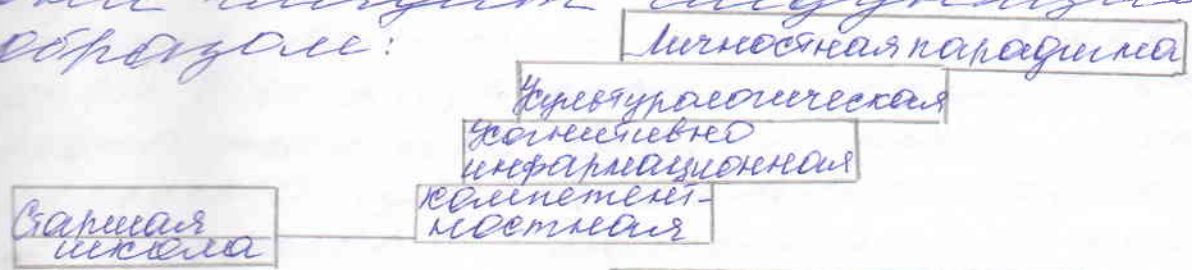 образом:
Личностная парадигма
Культурологическая
Когнитивно
информационная
Компетент-
ностная
Старшая
школа